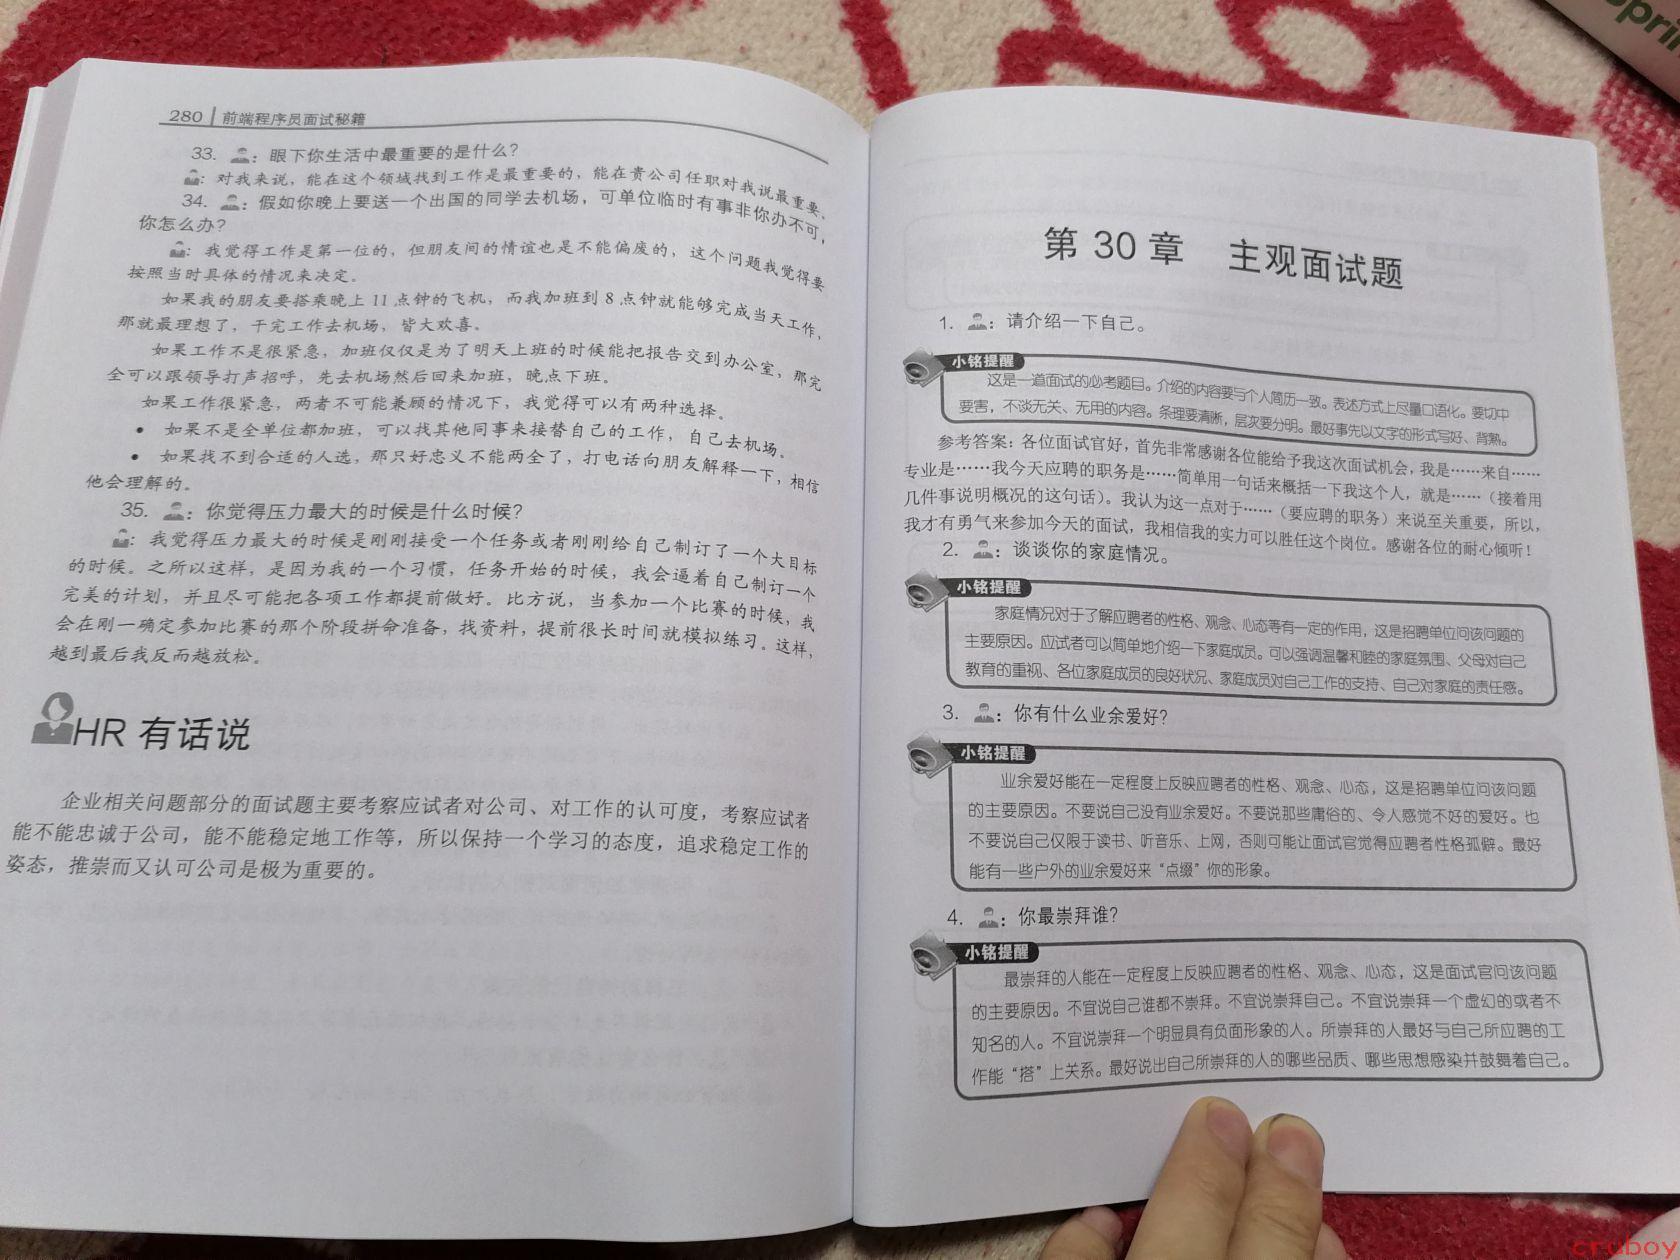 280 前端程序员面试秘籍
33. ：眼下你生活中最重要的是什么？
：对我来说，能在这个领域找到工作是最重要的，能在贵公司任职对我说最重要。
34. ：假如你晚上要送一个出国的同学去机场，可单位临时有事非你办不可，
你怎么办？
：我觉得工作是第一位的，但朋友间的情谊也是不能偏废的，这个问题我觉得要
按照当时具体的情况来决定。
如果我的朋友要搭乘晚上 11 点钟的飞机，而我加班到 8 点钟就能够完成当天工作，
那就最理想了，干完工作去机场，皆大欢喜。
如果工作不是很紧急，加班仅仅是为了明天上班的时候能把报告交到办公室，那完
全可以跟领导打声招呼，先去机场然后回来加班，晚点下班。
如果工作很紧急，两者不可能兼顾的情况下，我觉得可以有两种选择。
• 如果不是全单位都加班，可以找其他同事来接替自己的工作，自己去机场。
• 如果找不到合适的人选，那只好忠义不能两全了，打电话向朋友解释一下，相信
他会理解的。
35. ：你觉得压力最大的时候是什么时候？
：我觉得压力最大的时候是刚刚接受一个任务或者刚刚给自己制订了一个大目标
的时候。之所以这样，是因为我的一个习惯，任务开始的时候，我会逼着自己制订一个
完美的计划，并且尽可能把各项工作都提前做好。比方说，当参加一个比赛的时候，我
会在刚一确定参加比赛的那个阶段拼命准备，找资料，提前很长时间就模拟练习。这样，
越到最后我反而越放松。
HR 有话说
企业相关问题部分的面试题主要考察应试者对公司、对工作的认可度，考察应试者
能不能忠诚于公司，能不能稳定地工作等，所以保持一个学习的态度，追求稳定工作的
姿态，推崇而又认可公司是极为重要的。
第 30 章 主观面试题
1. ：请介绍一下自己。
小铭提醒
这是一道面试的必考题目。介绍的内容要与个人简历一致。表述方式上尽量口语化。要切中
要害，不谈无关、无用的内容。条理要清晰，层次要分明。最好事先以文字的形式写好、背熟。
参考答案：各位面试官好，首先非常感谢各位能给予我这次面试机会，我是……来自……
专业是……我今天应聘的职务是……简单用一句话来概括一下我这个人，就是……（接着用
几件事说明概况的这句话）。我认为这一点对于……（要应聘的职务）来说至关重要，所以，
我才有勇气来参加今天的面试，我相信我的实力可以胜任这个岗位。感谢各位的耐心倾听！
2. ：谈谈你的家庭情况。
小铭提醒
家庭情况对于了解应聘者的性格、观念、心态等有一定的作用，这是招聘单位问该问题的
主要原因。应试者可以简单地介绍一下家庭成员。可以强调温馨和睦的家庭氛围、父母对自己
教育的重视、各位家庭成员的良好状况、家庭成员对自己工作的支持、自己对家庭的责任感。
3. ：你有什么业余爱好？
小铭提醒
业余爱好能在一定程度上反映应聘者的性格、观念、心态，这是招聘单位问该问题
的主要原因。不要说自己没有业余爱好。不要说那些庸俗的、令人感觉不好的爱好。也
不要说自己仅限于读书、听音乐、上网，否则可能让面试官觉得应聘者性格孤僻。最好
能有一些户外的业余爱好来“点缀”你的形象。
4. ：你最崇拜谁？
小铭提醒
最崇拜的人能在一定程度上反映应聘者的性格、观念、心态，这是面试官问该问题
的主要原因。不宜说自己谁都不崇拜。不宜说崇拜自己。不宜说崇拜一个虚幻的或者不
知名的人。不宜说崇拜一个明显具有负面形象的人。所崇拜的人最好与自己所应聘的工
作能“搭”上关系。最好说出自己所崇拜的人的哪些品质、哪些思想感染并鼓舞着自己。
cruboy